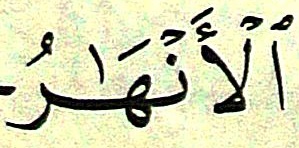 ٱلْأَنْهَـٰرُ